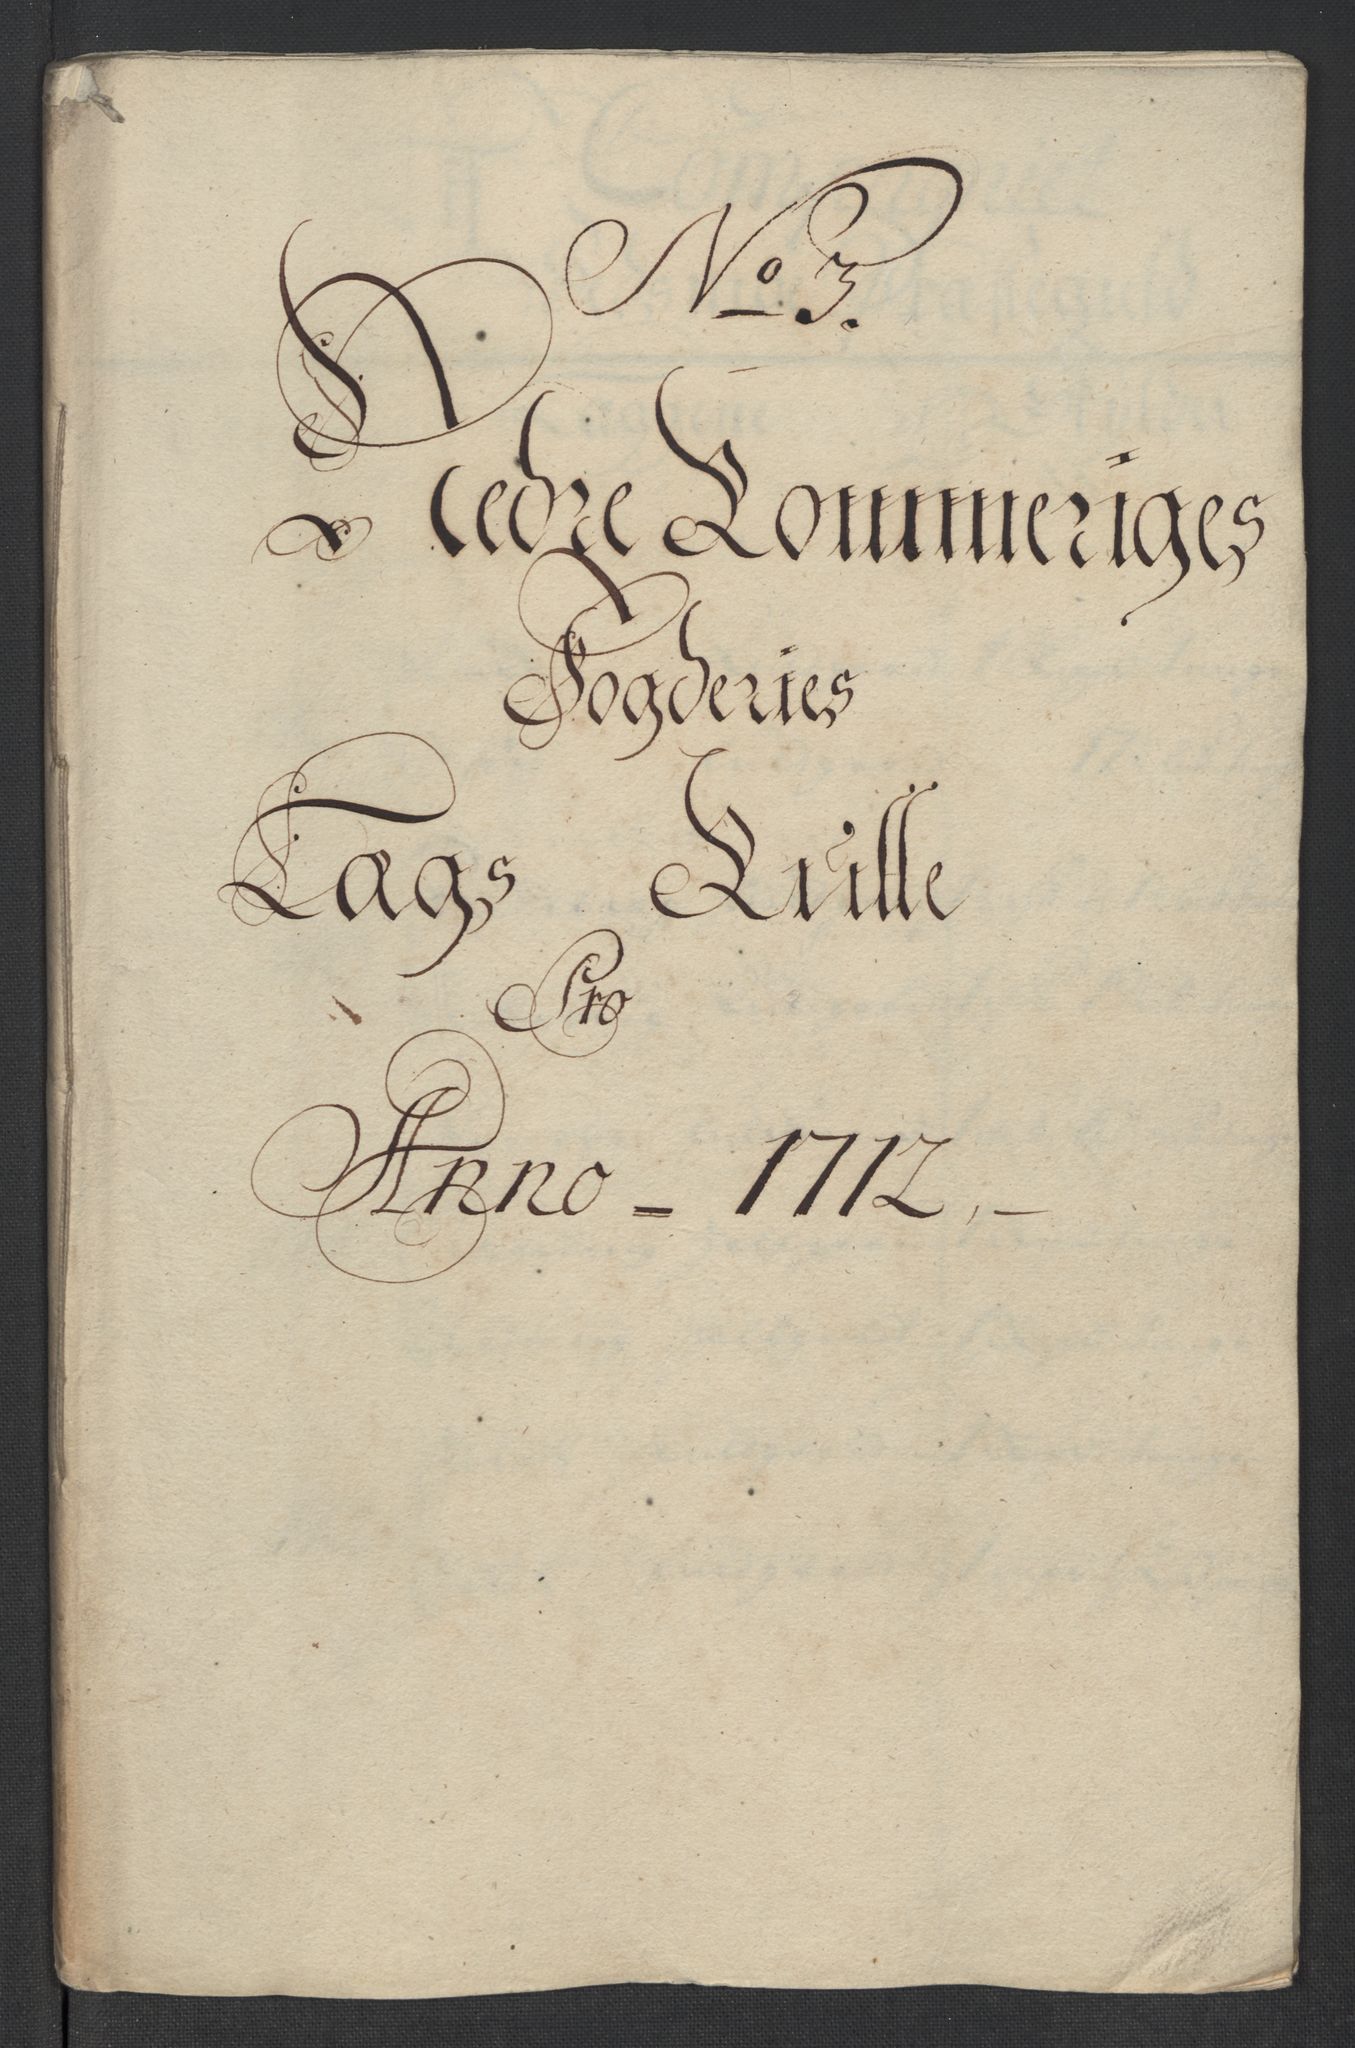 No 3.
Nedre Rommeriges
Fogderies
Sags Rulle
Pro
Anno = 1712, –